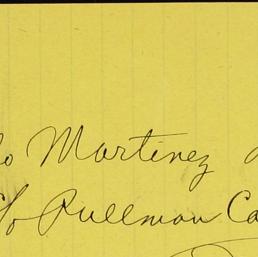 Martinez
c/o Pullman Ca